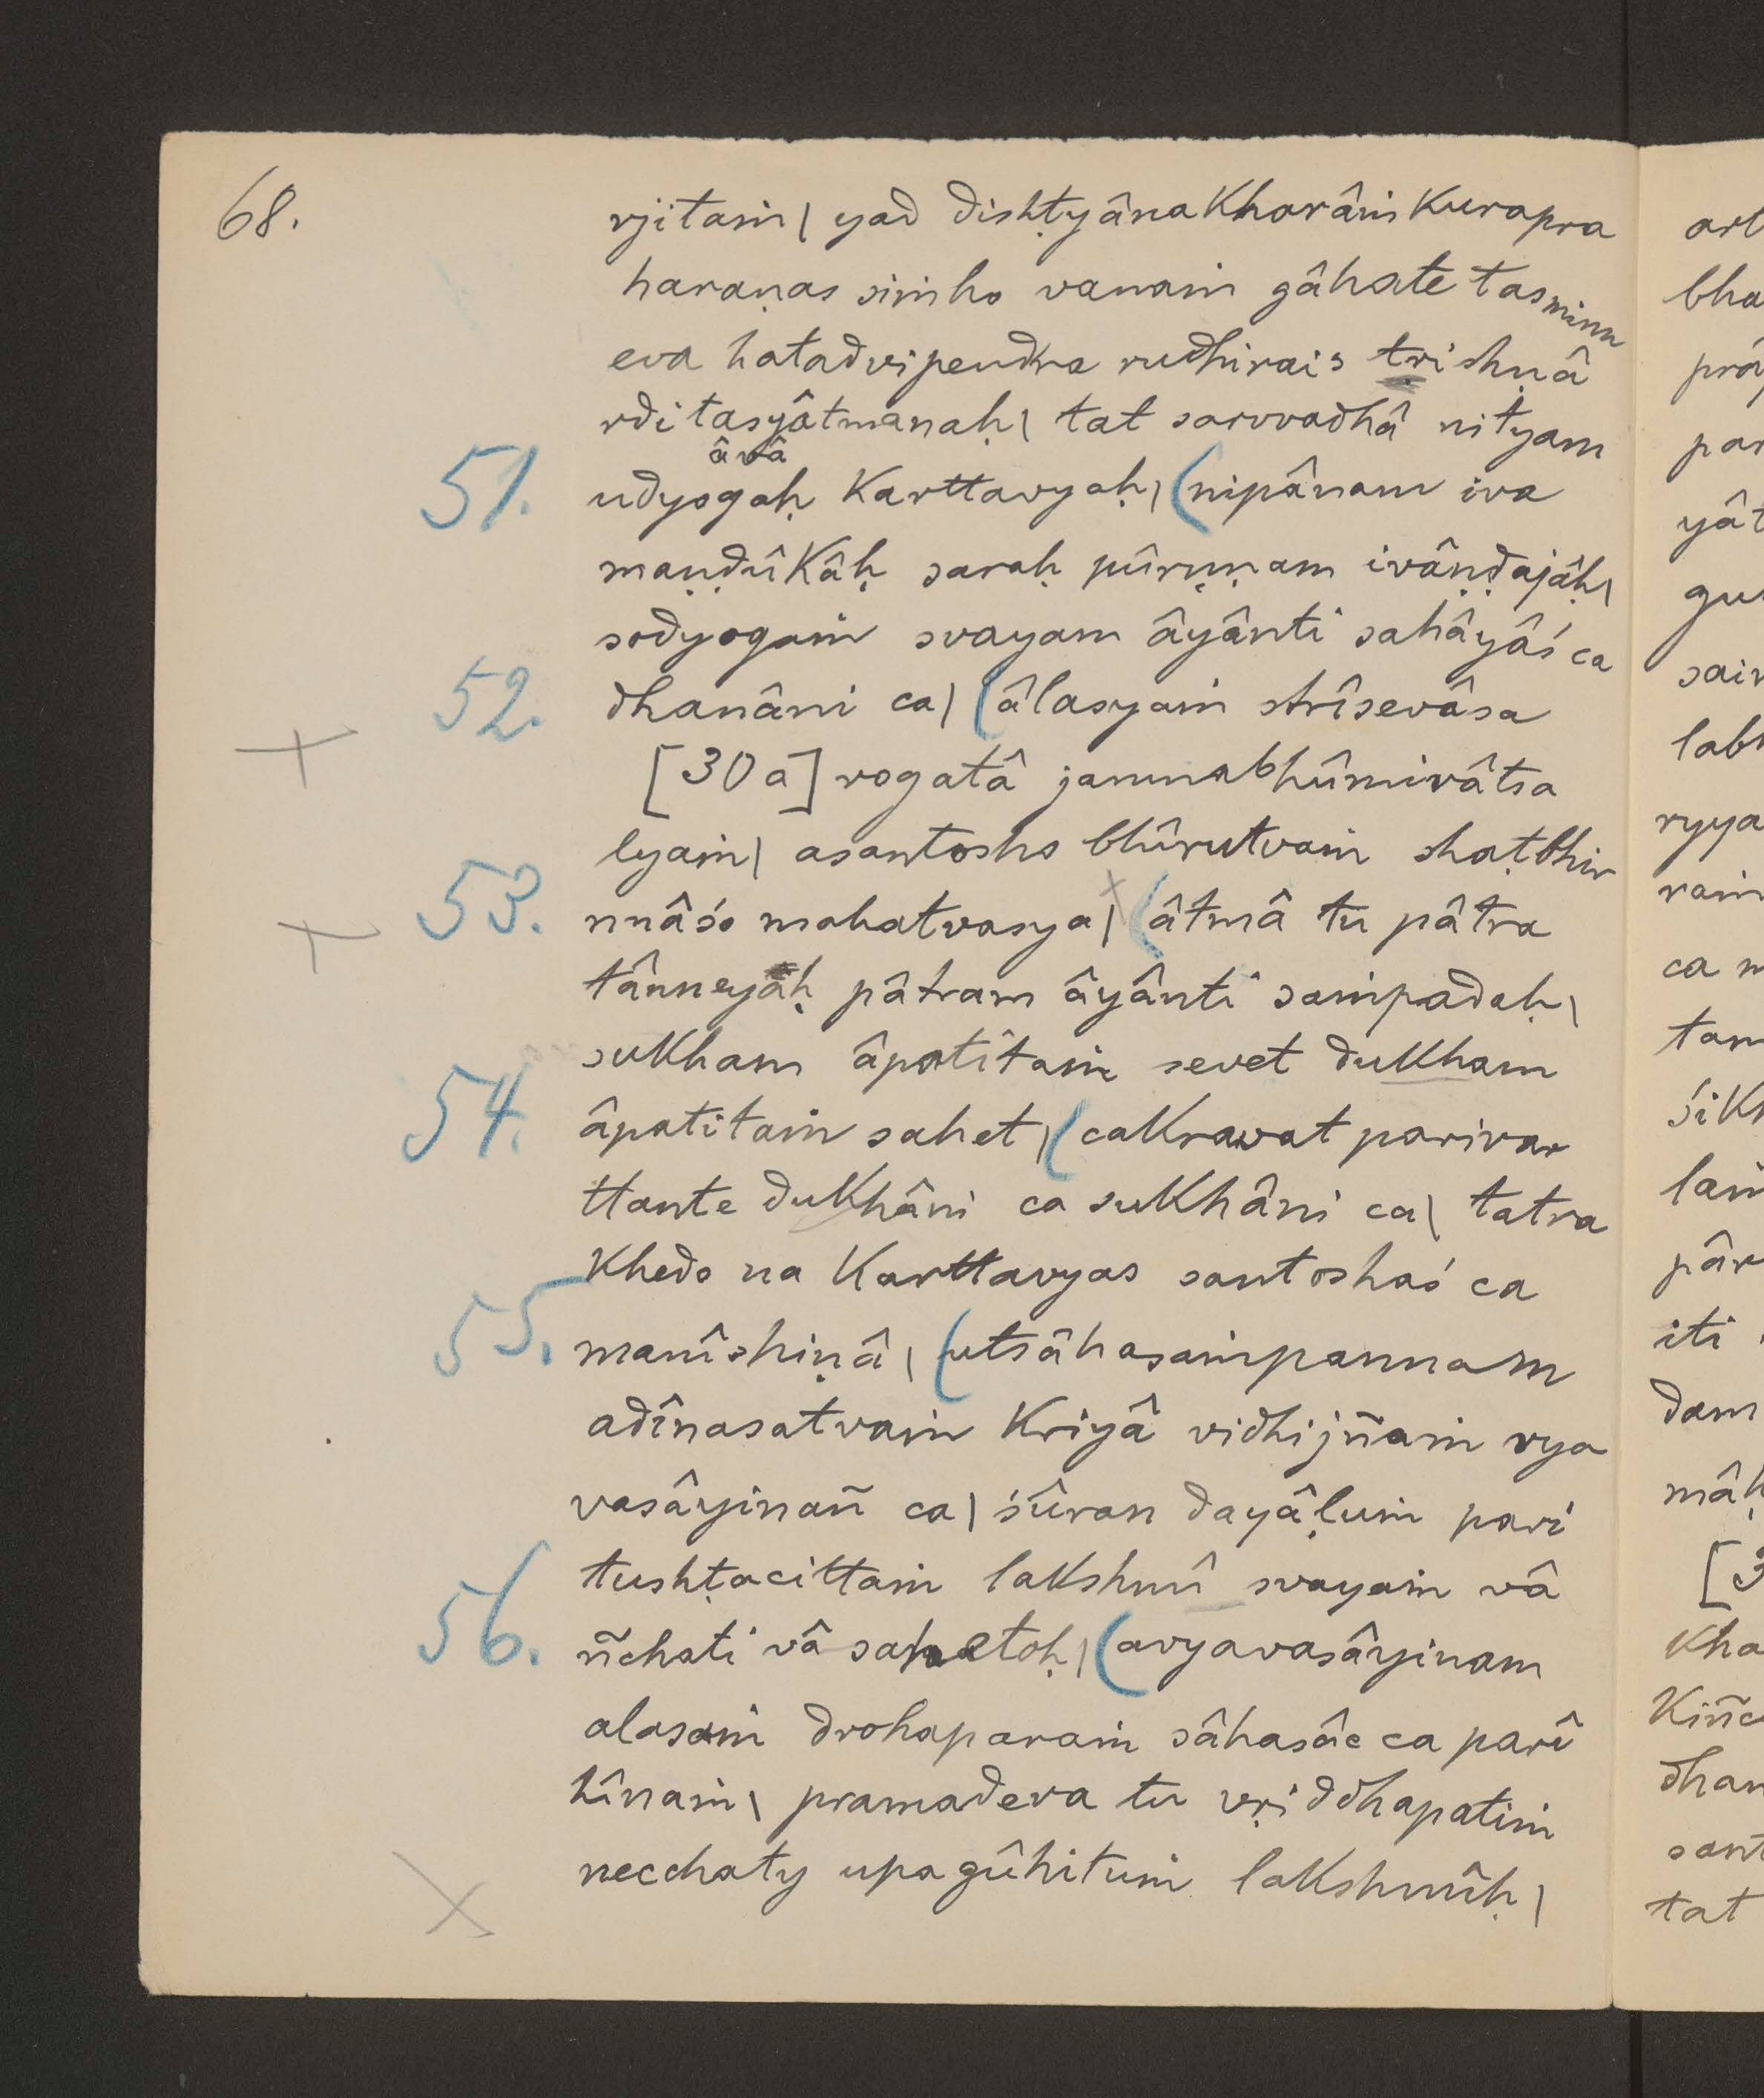 68.
rjitaṁ | yad dishṭyânakharâṁkurapra
haraṇas siṁho vanaṁ gâhate tasminn
eva hatadvipendra rudhirais trishṇâ
rditasyâtmanaḥ | tat sarvvadhâ nityam
âvâ
51. udyogaḥ karttavyaḥ | (nipânam iva
maṇḍûkâḥ saraḥ pûrṇṇam ivâṇḍajâḥ |
sodyogaṁ svayam âyânti sahâyâś ca
52. dhanâni ca | (âlasyaṁ strîsevâsa
[30a] rogatâ janmabhûmivâtsa
lyaṁ | asantosho bhîrutvaṁ shaṭbhir
53. nnâśo mahatvasya | (âtmâ tu pâtra
tânneyâḥ pâtram âyânti saṁpadaḥ |
sukham âpatitaṁ sevet dukham
54. âpatitaṁ sahet | (cakravat parivar
ttante dukhâni ca sukhâni ca | tatra
khedo na karttavyas santoshaś ca
55. manîshiṇâ | (utsâhasaṁpannam
adînasatvaṁ kriyâ vidhijñaṁ vya
vasâyinañ ca | śûran dayâḷuṁ pari
tushṭacittaṁ lakshmî svayaṁ vâ
56. ñchati vâsahetoḥ | (avyavasâyinam
alasaṁ drohaparaṁ sâhasâc ca parî
hînaṁ | pramadeva tu vṛiddhapatiṁ
necchaty upagûhituṁ lakshmîḥ |
art
bha
prá
par
yât
gu
sair
labh
ryya
raṁ
ca
tam
śikh
pâr
iti
dam
mâḥ
[3
kha
kiñc
dhan
sant
tat